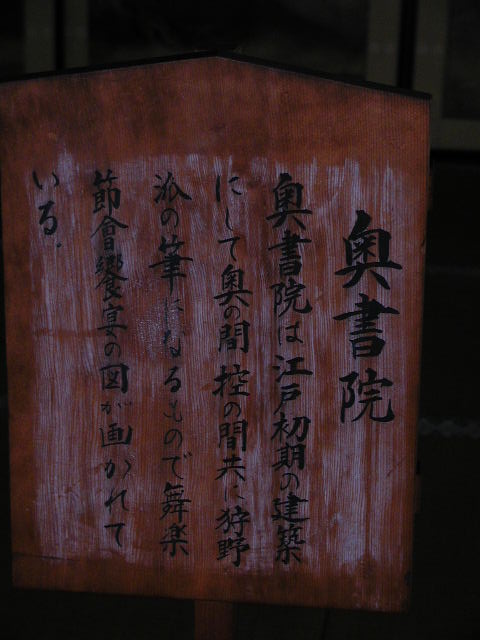 奥書院
奥書院は江戸初期の建築
にして奥の間控の間共に狩野
派の筆になるもので舞楽
節會饗宴の図が画かれて
いる.